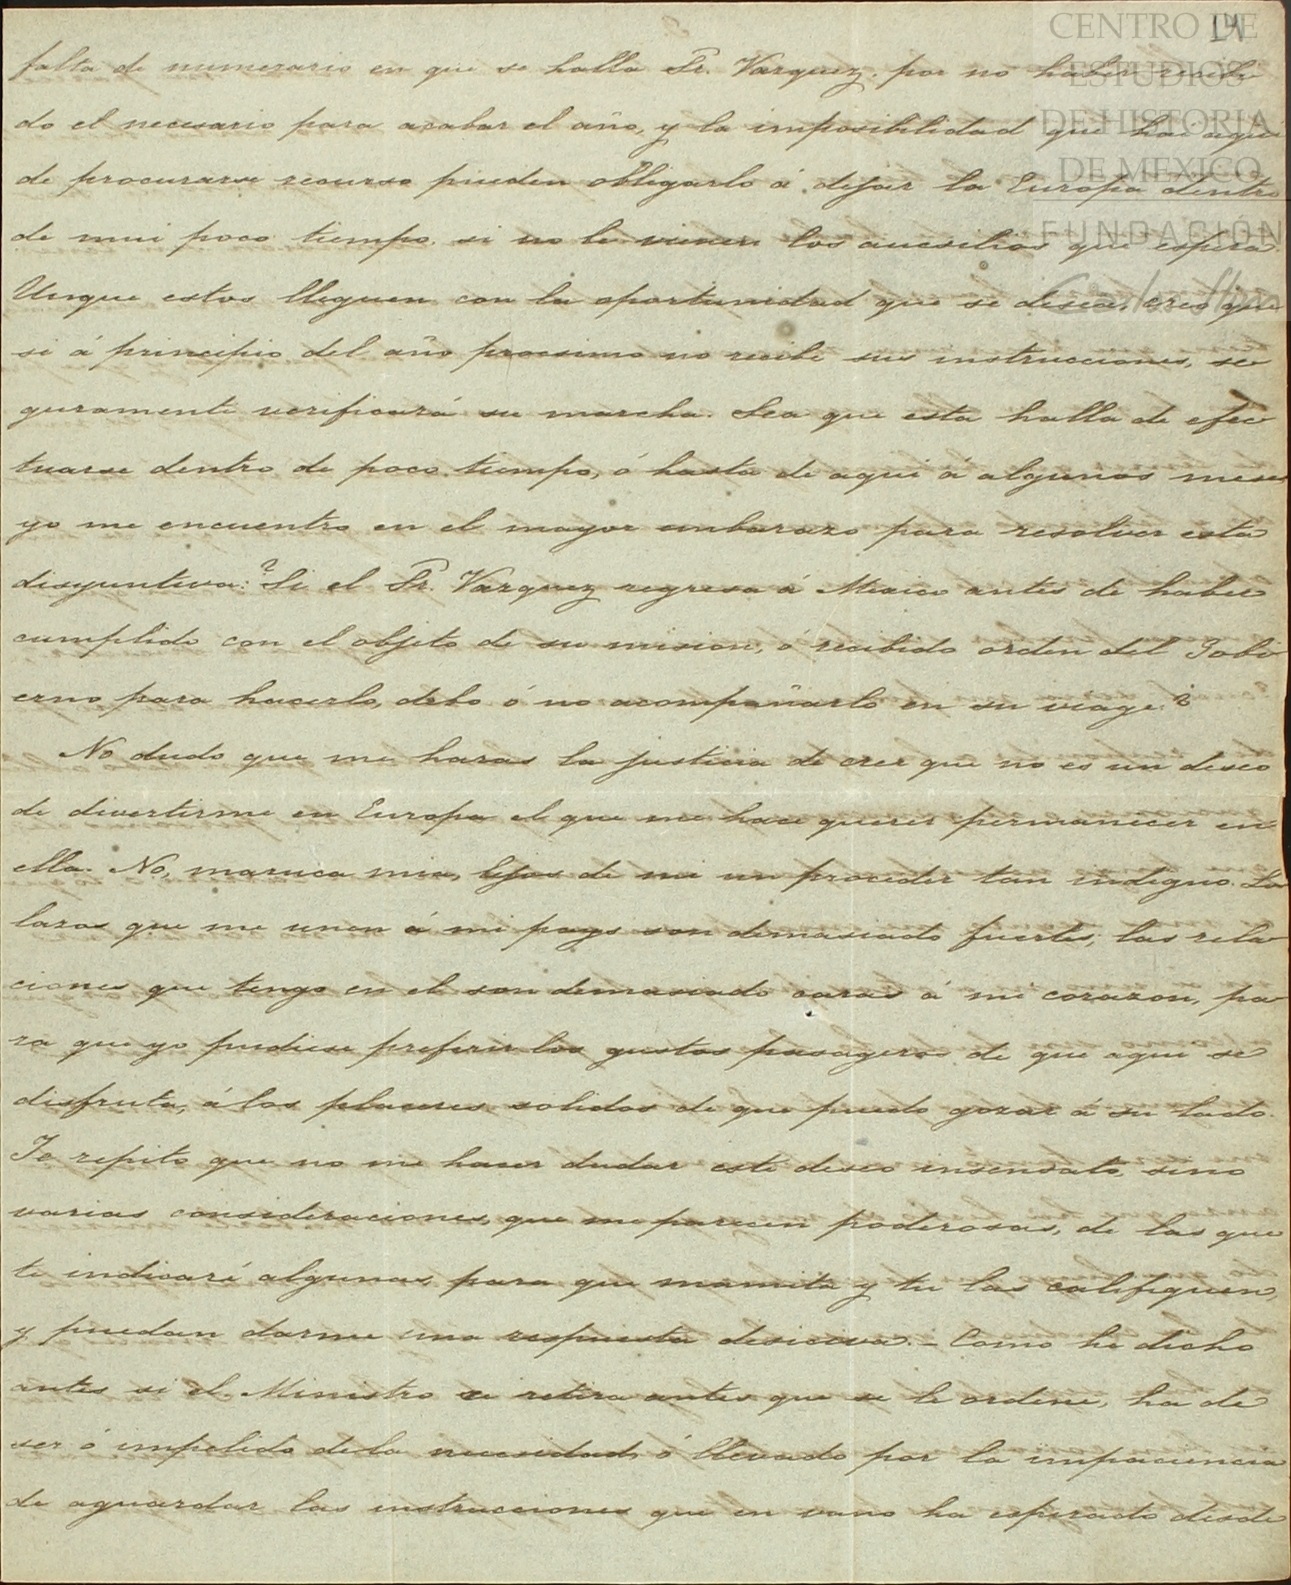 14
CENTRO DE
ESTUDIOS
DE HISTORIA
DE MEXICO
FUNDACIÓN
Carlos Slim
falta de numerario en que se halla Sr. Vazquez por no haber recibi
do el necesario para acabar el año, y la imposibilidad que hai aqui
de procurarse recurso pueden obligarlo á dejar la Europa dentro
de mui poco tiempo si no le vienen los aucsilios que espera.
Unque estos lleguen con la oportunidad que se desea, creo que
si á principio del año procsimo no recibe sus instrucciones, se
guramente verificará su marcha. Sea que esta halla de efec
tuarse dentro de poco tiempo, ó hasta de aqui á algunos meses
yo me encuentro en el mayor embarazo para resolver esta
disyuntiva: ? Si el Sr. Vazquez regresa á Mexico antes de haber
cumplido con el objeto de su mision, ó recibido orden del Gobi
erno para hacerlo, debo ó no acompañarlo en su viage?
No dudo que me haras la justicia de creer que no es un deseo
de divertirme en Europa el que me hace querer permanecer en
ella. No, maruca mia, lejos de mi un proceder tan indigno. Los
lazos que me unen á mi pays son demasiado fuertes; las rela
ciones que tengo en el son demasiado caras á mi corazon, pa
ra que yo pudiese preferir los gustos pasageros de que aqui se
disfruta, á los placeres solidos de que puedo gozar á su lado.
Te repito que no me hacer dudar este deseo insensato, sino
varias consideraciones, que me parecen poderosas, de las que
te indicaré algunas para que mamita y tu las califiquen,
y puedan darme una respuesta desiciva. – Como he dicho
antes si el Ministro se retira antes que se le ordene, ha de
ser ó impelido de la necesidad, ó llevado por la impaciencia
de aguardar las instrucciones que en vano ha esperado desde